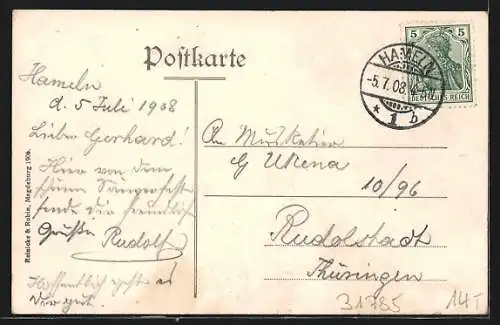 Postkarte
5 5
DEUTSCHES REICH
HAMELN
-5.7.08.
* 1 b
Hameln
d. 5 Juli 1908
Lieber Gerhard!
Hier von dem
schönen Sängerfeste
sende dir freundliche
Grüße
Rudolf
Hoffentlich geht es
Dir gut.
An Musketier
G Ukena
10/96
Rudolstadt
Thüringen
31785
14T
Reinicke & Rubin, Magdeburg 1906.